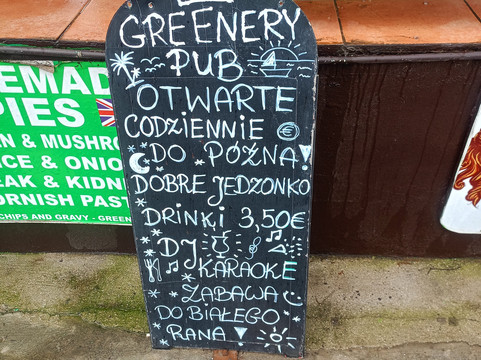 GREENERY
PUB
OTWARTE
CODZIENNIE €
DO PÓŹNA!
DOBRE JEDZONKO
DRINKI 3,50€
DJ
KARAOKE
ZABAWA
DO BIAŁEGO
RANA!
EMAD
PIES
N & MUSHRO
CE & ONIO
AK & KIDN
ORNISH PAST
CHIPS AND GRAVY - GREEN